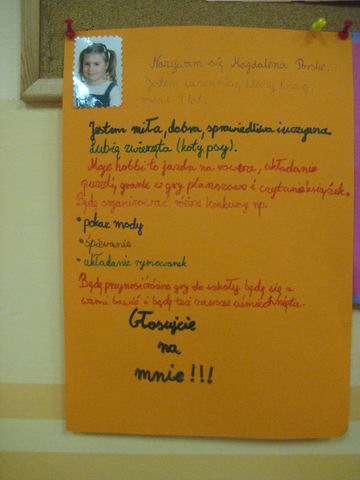 Nazywam się Magdalena
Jestem uczennicą klasy trzeciej,
mam 9 lat.
Jestem miła, dobra, sprawiedliwa i uczynna
Lubię zwierzęta (koty, psy).
Moje hobbi to jazda na rowerze, układanie
puzzli, granie w gry planszowe i czytanie książek.
Będę organizować różne konkursy np.
• pokaz mody
• śpiewanie
• układanie rymowanek
Będę przynosić różne gry do szkoły, będę się z
wami bawić i będę też zawsze uśmiechnięta.
Głosujcie
na
mnie!!!